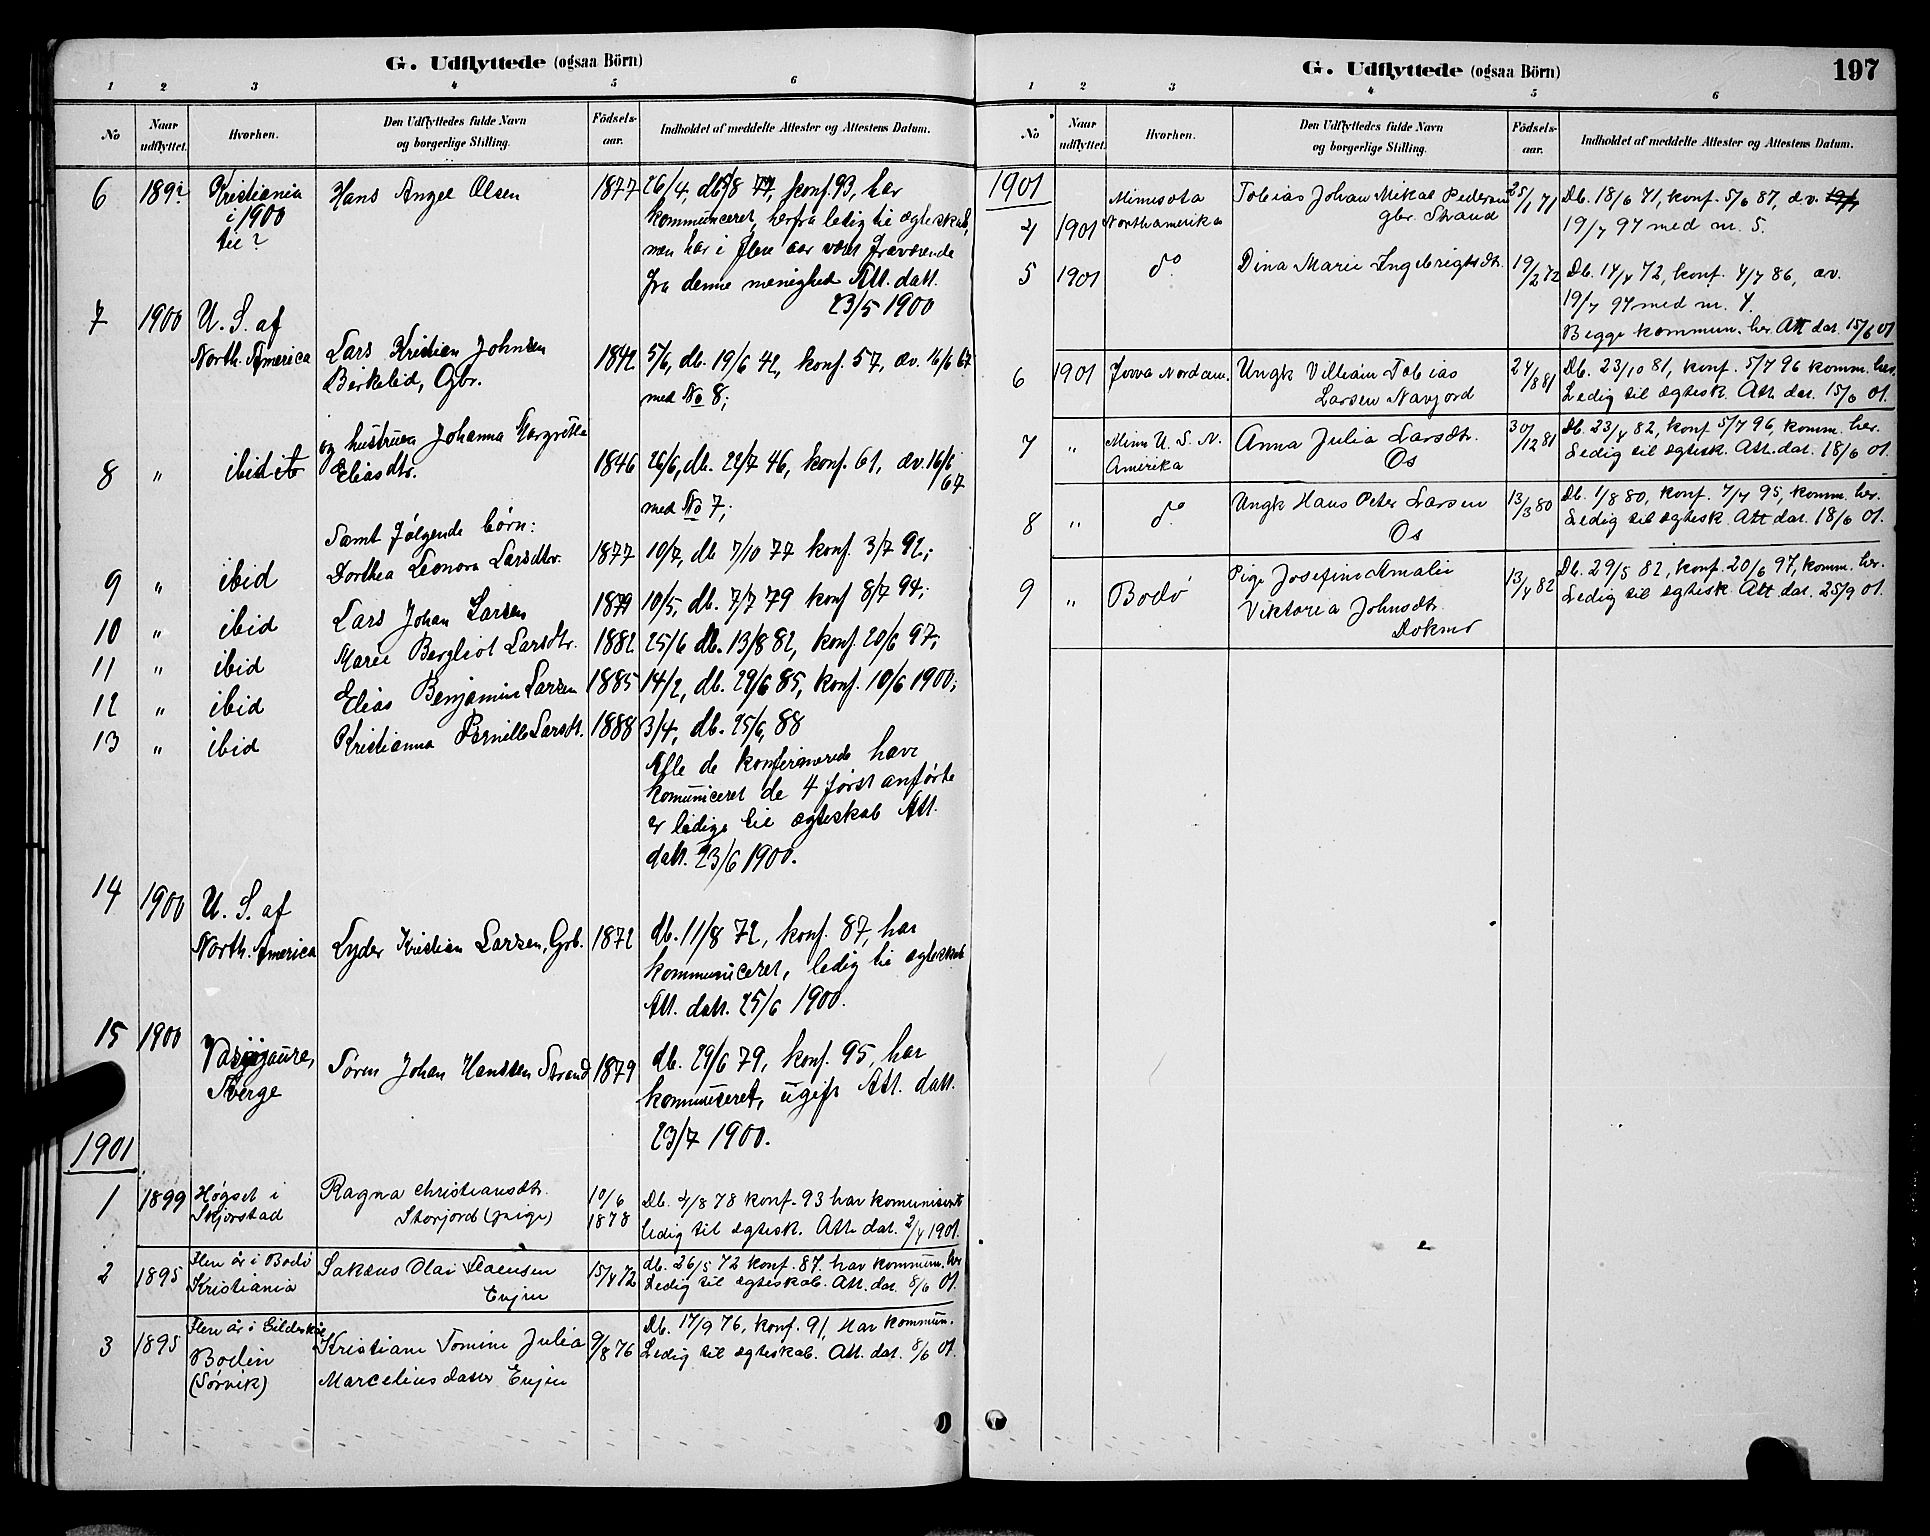 G. Udflyttede (ogsaa Börn)
1 2 3 4 5 6
No Naar udflyttet. Hvorhen. Den Udflyttedes fulde Navn og borgerlige Stilling. Födsels-aar. Indholdet af meddelte Attester og Attestens Datum.
6 189? Kristiania Hans Angel Olsen 1877 26/4, db. /8 77, konf. 93, har
i 1900 kommunceret, herfra ledig til ægteskab,
til? men har i flere aar været fraværende
fra denne menighed Att. datt.
23/5 1900
7 1900 U. S. af
North. America Lars Kristian Johnsen 1842 5/6, db. 19/6 42, konf. 57, av. 16/6 67
Birkelid, Gbr. med No 8;
og hustruen Johanna Margrethe
8 " ibid Eliasdtr. 1846 26/6, db. 22/7 46, konf. 61, av. 16/6 67
med No 7;
Samt følgende børn:
9 " ibid Dorthea Leonora Larsdtr. 1877 10/7, db 7/10 77 konf. 3/7 92;
10 " ibid Lars Johan Larsen 1879 10/5, db. 7/7 79 konf 8/7 94;
11 " ibid Marie Bergliot Larsdtr. 1882 25/6 db. 13/8 82, konf. 20/6 97;
12 " ibid Elias Benjamin Larsen 1885 14/2, db. 29/6 85, konf. 10/6 1900;
13 " ibid Kristianna Pernille Larsdt. 1888 3/4, db. 25/6, 88
Alle de konfirmerede have
komuniceret de 4 først anførte
er ledige til ægteskab Att.
datt. 23/6 1900.
14 1900 U. S. af
North. America Lyder Kristian Larsen, Grb. 1872 db. 11/8 72, konf. 87, har
kommuniceret, ledig til ægteskab
Att. datt. 25/6 1900.
15 1900 Vasijaure, Søren Johan Hanssen Strand 1879 db. 29/6 79, konf. 95, har
Sverge kommuniceret, ugift Att. datt.
23/7 1900.
1901
1 1899 Høgset i Ragna Christiansdtr. 10/6 Db. 4/8 78 konf. 93 har komuniseret
Skjerstad Storjord (pige) 1878 Ledig til ægtesk. Att. dat. 2/4 1901.
2 1895 Flere år i Bodø Sakæus Olai 15/4 72 db. 26/5 72 konf. 87. har kommun. her
Kristiania Evjen Ledig til ægteskab. Att. dat. 8/6 01.
3 1895 Flere år i Gildeskål Kristiane Tomine Julia 9/8 76 Db. 17/9 76, konf. 91, Har kommun.
Bodin Marceliusdatter Evjen Ledig til ægteskab. Att. dat. 8/6 01.
(Sørvik)
G. Udflyttede (ogsaa Börn) 197
1 2 3 4 5 6
No Naar udflyttet. Hvorhen. Den Udflyttedes fulde Navn og borgerlige Stilling. Födsels-aar. Indholdet af meddelte Attester og Attestens Datum.
1901
4 1901 Minisota Tobias Johan Mikal Pedersen 25/1 71 Db. 18/6 71, konf. 5/6 87, av.
Northamerika gbr. Strand 19/7 97 med nr. 5.
5 1901 do Dina Marie Ingebrigtsdtr. 19/2 72 Db. 14/4 72, konf. 4/7 86, av.
19/7 97 med nr. 4.
Begge kommun. her. Att dat. 15/6 01
6 1901 Jowa Nordam. Ungk Villiam Tobias 24/8 81 Db. 23/10 81, konf. 5/7 96 komm. her.
Larsen Navjord Ledig til ægtesk. Att. dat. 15/6 01.
7 " Minn U. S. N. Anna Julia Larsdtr. 30/12 81 Db. 23/4 82, konf 5/7 96, komm. her.
Amerika Os Ledig til ægtesk. Att. dat. 18/6 01.
8 " do Ungk Hans Peter Larsen 13/3 80 Db. 1/8 80, konf. 7/7 95, komm. her.
Os Ledig til ægtesk. Att dat. 18/6 01.
9 " Bodø Pige Josefine Amalie 13/4 82 Db. 29/5 82, konf. 20/6 97, komm. her.
Viktoria Johnsdtr. Ledig til ægtesk. Att dat. 25/9 01.
Dokmo